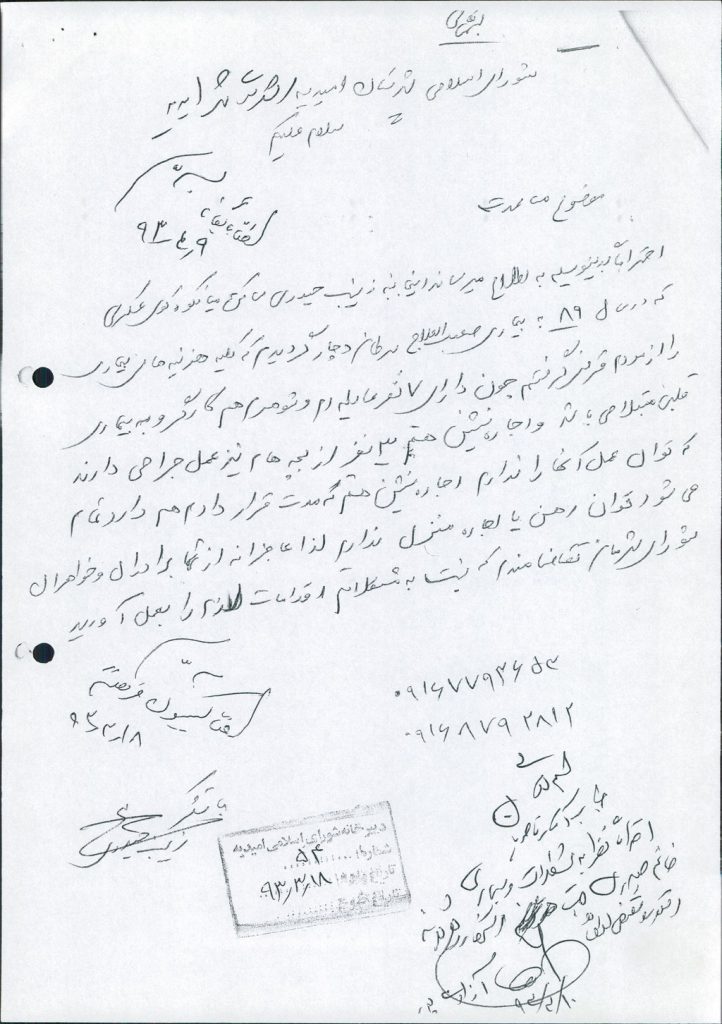 بسمه تعالی
شورای اسلامی شهرستان امیدیه
سلام علیکم
۹۳
موضوع مساعدت
احتراماً بدینوسیله به اطلاع میرساند اینجانبه زینب حیدری ساکن میانکوه کوی عسکری
که در سال ۸۹ به بیماری صعب العلاج سرطان دچار گردیدم که کلیه هزینه های بیماری
را از مردم قرض گرفتم چون دارای ۷ نفر عایله ام و شوهرم هم کارگر و به بیماری
قلبی مبتلا می باشد و اجاره نشین هستم ۳ نفر از بچه هام نیز عمل جراحی دارند
که توان عمل آنها را ندارم اجاره نشین هستم که مدت قرار دادم هم دارد تمام
می شود توان رهن یا اجاره منزل ندارم لذا عاجزانه از شما برادران و خواهران
شورای شهرمان تقاضامندم که نسبت به مشکلاتم اقدامات لازم را بعمل آورید
۰۹۱۶۷۷۹۳۶۵۳
۰۹۱۶۸۷۹۲۸۱۲
کمیسیون فرهنگی
۹۳/۳/۱۸
با تشکر
زینب حیدری
دبیرخانه شورای اسلامی امیدیه
شماره: ۵۴
تاریخ ورود: ۹۳/۳/۱۸
تاریخ خروج:
احتراماً نظر به مشکلات و بیماری
خانم حیدری